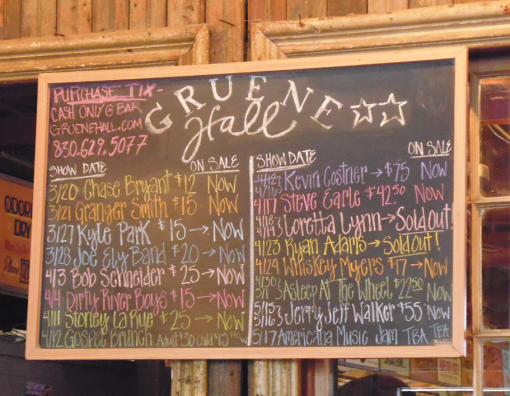 PURCHASE TIX-
CASH ONLY @ BAR
GRUENEHALL.COM
830.629.5077
GRUENE
Hall
SHOW DATE ON SALE
3/20 Chase Bryant $12 Now
3/21 Granger Smith $15 → Now
3/27 Kyle Park $15 → Now
3/28 Joe Ely Band $20 → Now
4/3 Bob Schneider $25 → Now
4/4 Dirty River Boys $15 → Now
4/11 Stoney LaRue $25 → Now
4/12 Gospel Brunch Now
SHOW DATE ON SALE
Kevin Costner → $75 Now
4/17 Steve Earle $42.50 Now
Loretta Lynn → Sold Out!
4/23 Ryan Adams → Sold Out!
4/24 Whiskey Myers $17 → Now
Asleep At The Wheel $22.50 Now
Jerry Jeff Walker $55 Now
5/17 Americana Music Jam TBA TBA
ODOR
DRY